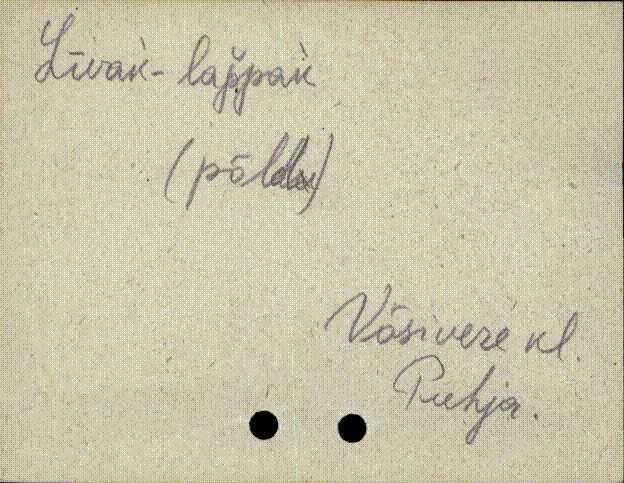 Līvak̀ - lap̆pak̀
(põld)
Võsivere kl.
Puhja.